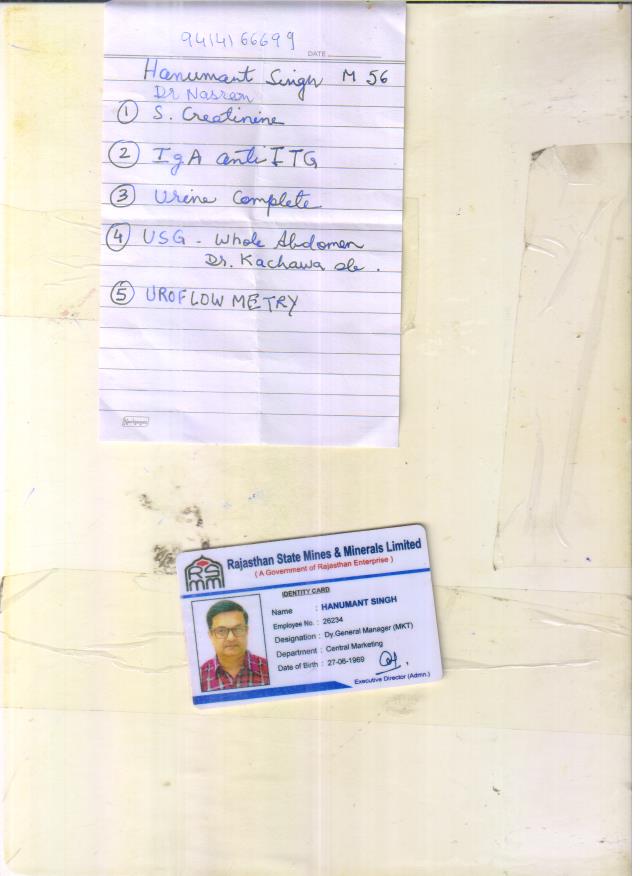 9414166699
DATE
Hanumant Singh M 56
Dr Nasreen
① S. Creatinine
② IgA anti ITG
③ Urine Complete
④ USG - Whole Abdomen
Dr. Kachawa
⑤ UROFLOWMETRY
RSMM
Rajasthan State Mines & Minerals Limited
( A Government of Rajasthan Enterprise )
IDENTITY CARD
Name : HANUMANT SINGH
Employee No. : 26234
Designation : Dy.General Manager (MKT)
Department : Central Marketing
Date of Birth : 27-06-1969
Executive Director (Admn.)